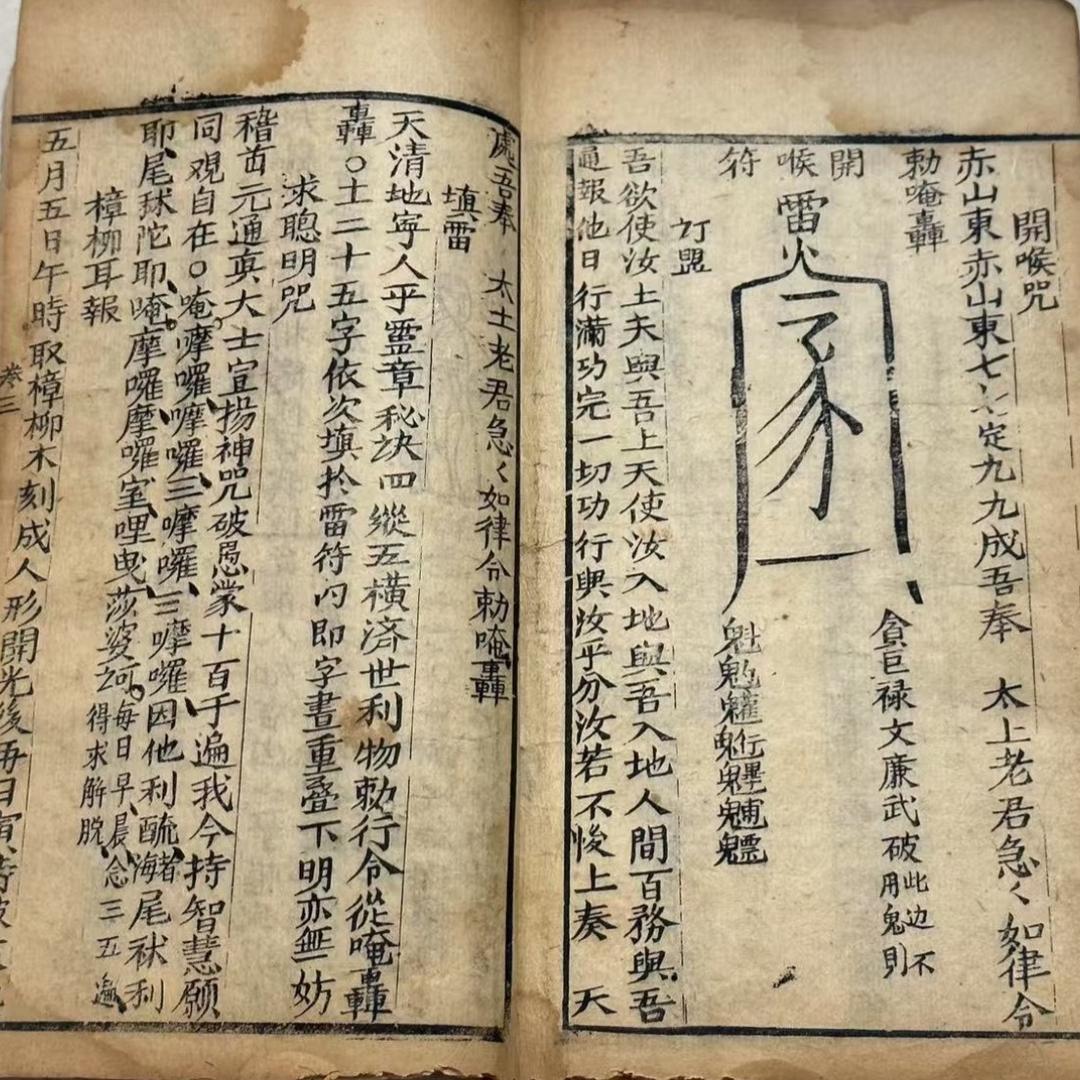 開喉咒
赤山東赤山東七七定九九成吾奉 太上老君急々如律令
勅唵轟
開喉符
雷火
貪巨禄文廉武破
此边不
用鬼則
魁魀䰢魓
訂盟
吾欲使汝土夫與吾上天使汝入地與吾入地人間百務與吾
通報他日行滿功完一切功行與汝乎分汝若不悛上奏 天
處吾奉 太土老君急々如律令勅唵轟
填雷
天清地寧人乎霊章秘决四縱五横済世利物勅行令從唵轟
轟○土二十五字依次填扵雷符内即字晝重叠下明亦無妨
求聰明咒
稽首元通真大士宣揚神咒破愚蒙十百千遍我今持智慧願
同观自在○唵摩囉摩囉三摩囉三摩囉因他利酼海諸尾祑利
耶尾球陀耶唵摩囉摩囉室哩曳莎婆訶每日早晨念三五遍
得求解脱
樟柳耳報
五月五日午時取樟柳木刻成人形開光後再日寅時
卷三